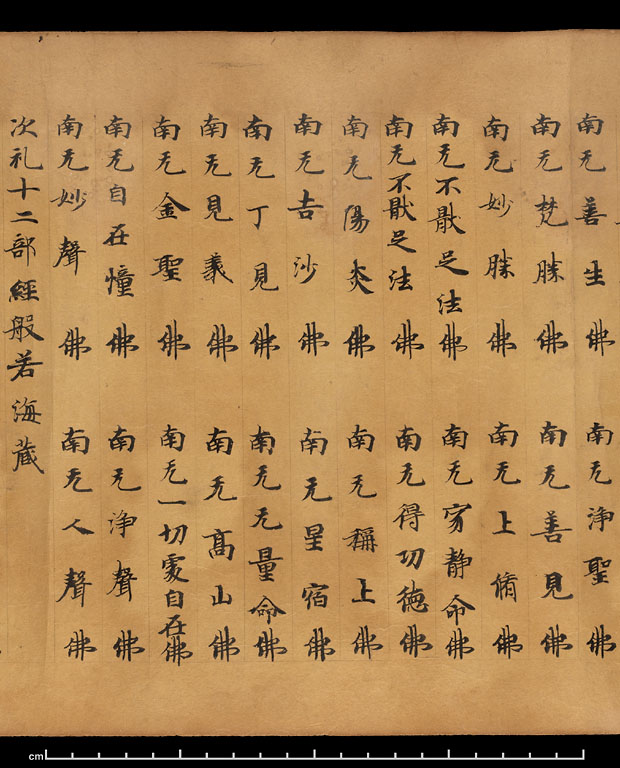 南无善生佛　南无净聖佛
南无梵勝佛　南无善見佛
南无妙勝佛　南无上脩佛
南无不猒足法佛　南无寂静命佛
南无不猒足法佛　南无得功德佛
南无陽炎佛　南无稱上佛
南无吉沙佛　南无星宿佛
南无丁見佛　南无无量命佛
南无見義佛　南无髙山佛
南无金聖佛　南无一切處自在佛
南无自在憧佛　南无净聲佛
南无妙聲佛　南无人聲佛
次礼十二部經般若海藏
cm